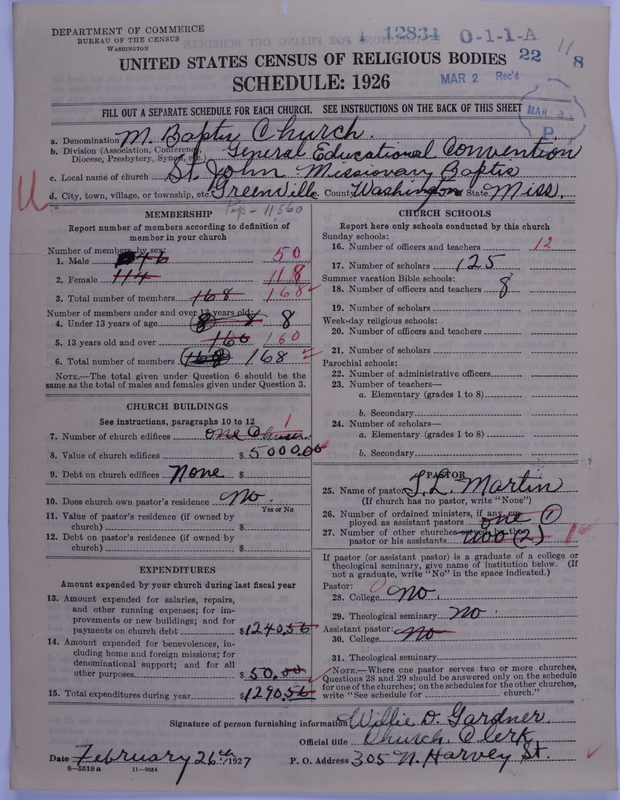 DEPARTMENT OF COMMERCE
BUREAU OF THE CENSUS
WASHINGTON
12834 0-1-1-A
22 11 8
UNITED STATES CENSUS OF RELIGIOUS BODIES
SCHEDULE: 1926
MAR 2 Rec'd
FILL OUT A SEPARATE SCHEDULE FOR EACH CHURCH. SEE INSTRUCTIONS ON THE BACK OF THIS SHEET
MAR 3
P.
a. Denomination M. Baptis Church.
b. Division (Association, Conference, Diocese, Presbytery, Synod, etc.) General Educational Convention
c. Local name of church St. John Missionary Baptis
d. City, town, village, or township, etc. Greenville County Washington State Miss.
Pop - 11,560
MEMBERSHIP
Report number of members according to definition of
member in your church
Number of members, by sex:
1. Male 46 50
2. Female 114 118
3. Total number of members 168 168
Number of members under and over 13 years old:
4. Under 13 years of age 8 8 8
5. 13 years old and over 160 160
6. Total number of members 168 168
NOTE.—The total given under Question 6 should be the
same as the total of males and females given under Question 3.
CHURCH BUILDINGS
See instructions, paragraphs 10 to 12
7. Number of church edifices one Church 1
8. Value of church edifices $5000.00
9. Debt on church edifices None $
10. Does church own pastor's residence No.
Yes or No
11. Value of pastor's residence (if owned by
church) $
12. Debt on pastor's residence (if owned by
church) $
EXPENDITURES
Amount expended by your church during last fiscal year
13. Amount expended for salaries, repairs,
and other running expenses; for im-
provements or new buildings; and for
payments on church debt $1240.56
14. Amount expended for benevolences, in-
cluding home and foreign missions; for
denominational support; and for all
other purposes $50.00
15. Total expenditures during year $1290.56
CHURCH SCHOOLS
Report here only schools conducted by this church
Sunday schools:
16. Number of officers and teachers 12
17. Number of scholars 125
Summer vacation Bible schools:
18. Number of officers and teachers 8
19. Number of scholars
Week-day religious schools:
20. Number of officers and teachers
21. Number of scholars
Parochial schools:
22. Number of administrative officers
23. Number of teachers—
a. Elementary (grades 1 to 8)
b. Secondary
24. Number of scholars—
a. Elementary (grades 1 to 8)
b. Secondary
PASTOR
25. Name of pastor J. L. Martin
(If church has no pastor, write "None")
26. Number of ordained ministers, if any, em-
ployed as assistant pastors one (1)
27. Number of other churches
pastor or his assistants two (2) 1
If pastor (or assistant pastor) is a graduate of a college or
theological seminary, give name of institution below. (If
not a graduate, write "No" in the space indicated.)
Pastor:
28. College No.
29. Theological seminary No.
Assistant pastor:
30. College No
31. Theological seminary
NOTE.—Where one pastor serves two or more churches,
Questions 28 and 29 should be answered only on the schedule
for one of the churches; on the schedules for the other churches,
write "See schedule for church."
Signature of person furnishing information Willie D. Gardner.
Official title Church Clerk
Date February 26th, 1927 P. O. Address 305 N. Harvey St.
8—5518a 11—9084